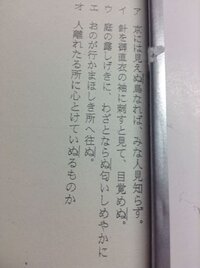 ア 京には見えぬ鳥なれば、みな人見知らず。
イ 針を御直衣の袖に刺すと見て、目覚めぬ。
ウ 庭の露しげきに、わざとならぬ匂いしめやかに
エ おのが行かまほしき所へ往ぬ。
オ 人離れたる所に心とけていぬるものか